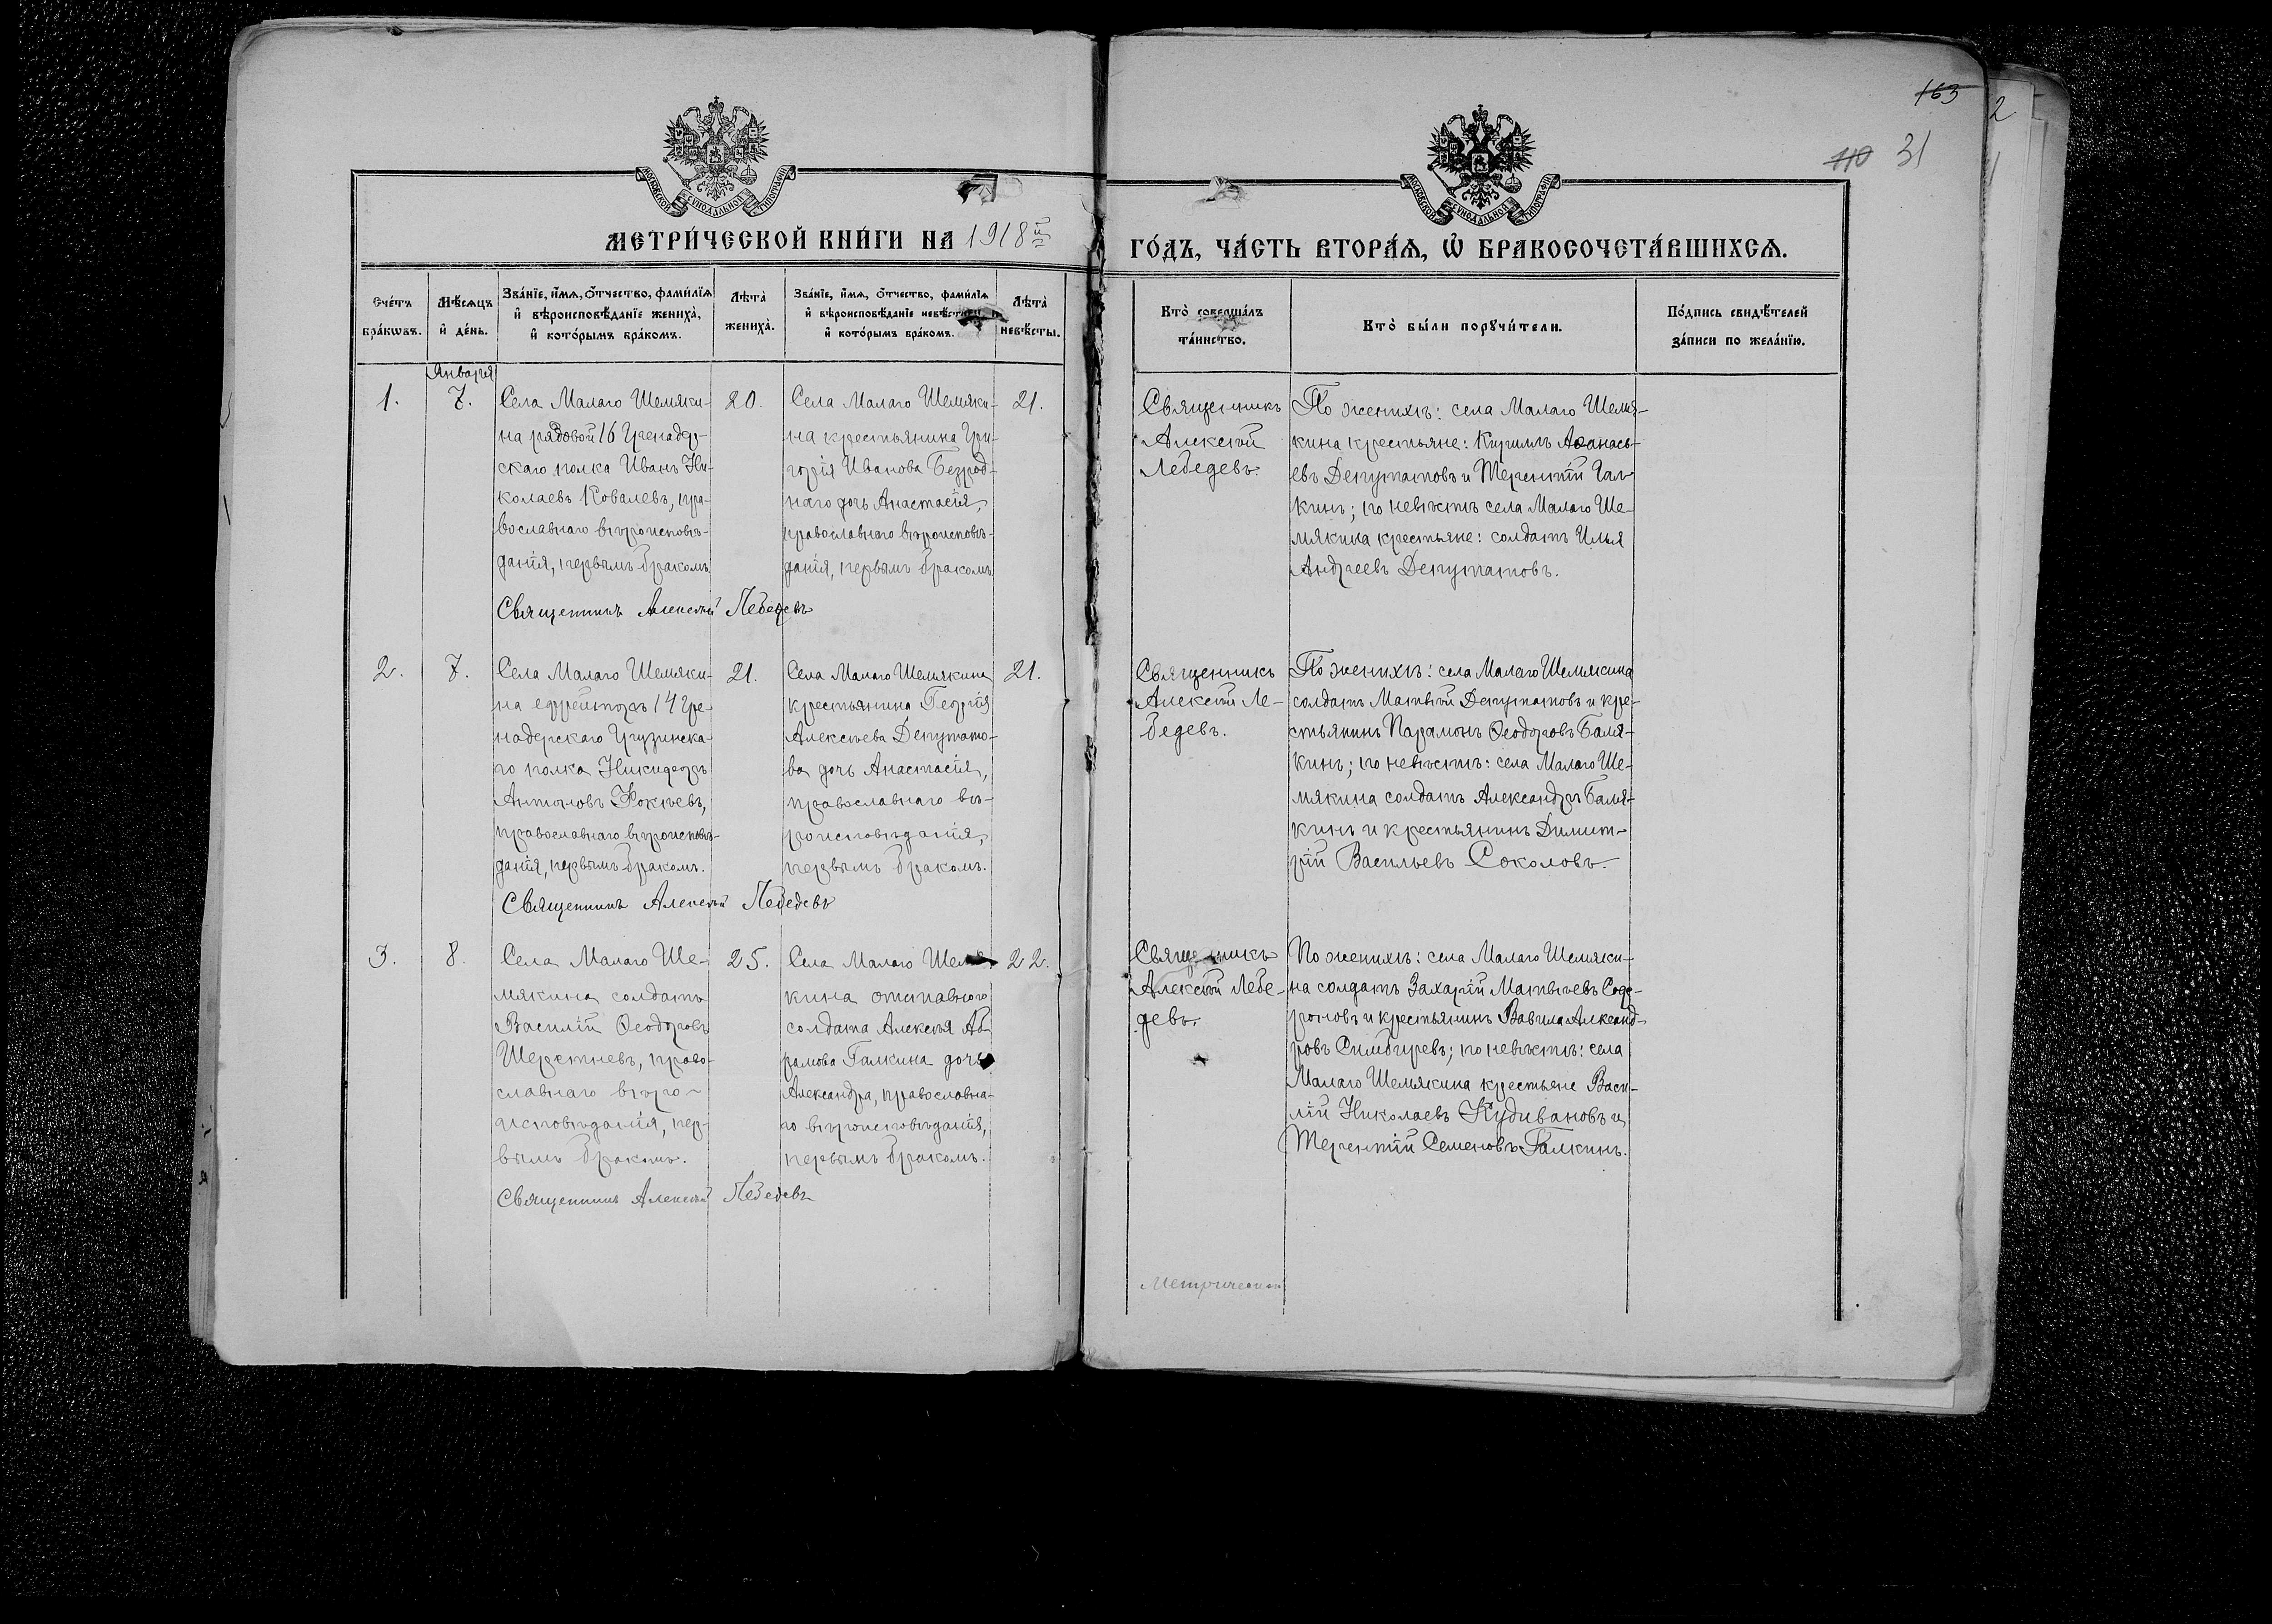 163
2
110 31
МОСКОВСКОЙ СѴНОДАЛЬНОЙ ТИПОГРАФІИ
МОСКОВСКОЙ СѴНОДАЛЬНОЙ ТИПОГРАФІИ
МЕТРИ́ЧЕСКОЙ КНИ́ГИ НА 1918й
ГО́ДЪ, ЧА́СТЬ ВТОРА́Ѧ, Ѡ҆ БРАКОСОЧЕТА́ВШИХСѦ.
Сче́тъ бра́кѡвъ.
Мѣ́сѧцъ и҆ де́нь.
Зва́нїе, и҆́мѧ, о҆́тчество, фами́лїѧ
и҆ вѣроисповѣ́данїе жениха̀,
и҆ кото́рымъ бра́комъ.
Лѣта̀ жениха̀.
Зва́нїе, и҆́мѧ, о҆́тчество, фами́лїѧ
и҆ вѣроисповѣ́данїе невѣ́сты,
и҆ кото́рымъ бра́комъ.
Лѣта̀ невѣ́сты.
Кто̀ соверша́лъ
та́инство.
Кто̀ бы́ли порꙋчи́тели.
По́дпись свидѣ́телей
за́писи по жела́нїю.
Января
1.
7.
Села Малаго Шемяки-
на рядовой 16 Гренадер-
скаго полка Иванъ Ни-
колаевъ Ковалевъ, пра-
вославнаго вѣроисповѣ-
данія, первымъ бракомъ.
20.
Села Малаго Шемяки-
на крестьянина Гри-
горія Иванова Безрод-
наго дочь Анастасія,
православнаго вѣроисповѣ-
данія, первымъ бракомъ.
21.
Священникъ
Алексѣй
Лебедевъ.
По женихѣ: села Малаго Шемя-
кина крестьяне: Кириллъ Аѳанась-
евъ Депутатовъ и Терентій Гал-
кинъ; по невѣстѣ села Малаго Ше-
мякина крестьяне: солдатъ Илья
Андреевъ Депутатовъ.
Священникъ Алексѣй Лебедевъ
2.
7.
Села Малаго Шемяки-
на ефрейторъ 14 Гре-
надерскаго Грузинска-
го полка Никифоръ
Антоновъ Фокѣевъ,
православнаго вѣроисповѣ-
данія, первымъ бракомъ.
21.
Села Малаго Шемякина
крестьянина Георгія
Алексѣева Депутато-
ва дочь Анастасія,
православнаго вѣ-
роисповѣданія,
первымъ бракомъ.
21.
Священникъ
Алексѣй Ле-
бедевъ.
По женихѣ: села Малаго Шемякина
солдатъ Матвѣй Депутатовъ и кре-
стьянинъ Парамонъ Ѳеодоровъ Баля-
кинъ; по невѣстѣ: села Малаго Ше-
мякина солдатъ Александръ Баля-
кинъ и крестьянинъ Димит-
рій Васильевъ Соколовъ.
Священникъ Алексѣй Лебедевъ
3.
8.
Села Малаго Ше-
мякина солдатъ
Василій Ѳеодоровъ
Шерстневъ, право-
славнаго вѣро-
исповѣданія, пер-
вымъ бракомъ.
25.
Села Малаго Шемя-
кина отставного
солдата Алексѣя Аб-
рамова Галкина дочь
Александра, православна-
го вѣроисповѣданія,
первымъ бракомъ.
22.
Священникъ
Алексѣй Лебе-
девъ.
По женихѣ: села Малаго Шемяки-
на солдатъ Захарій Матвѣевъ Соф-
роновъ и крестьянинъ Вавила Александ-
ровъ Симбиревъ; по невѣстѣ: села
Малаго Шемякина крестьяне Васи-
лій Николаевъ Кудивановъ и
Терентій Семеновъ Галкинъ.
Священникъ Алексѣй Лебедевъ